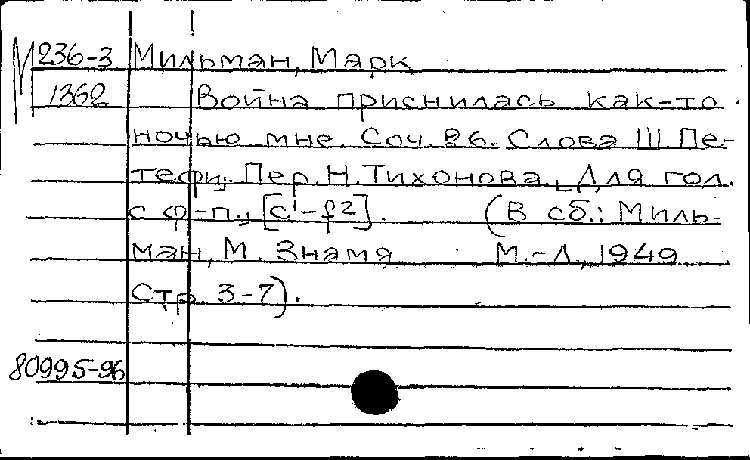 М 236-3 Мильман, Марк
1362 Война приснилась как-то
ночью мне. Соч. 26. Слова Ш Пе-
тефи. Пер. Н. Тихонова. Для гол.
с ф-п., [c¹-f²]. (В сб.: Миль-
ман, М. Знамя М.-Л., 1949
Стр. 3-7).
80995-96